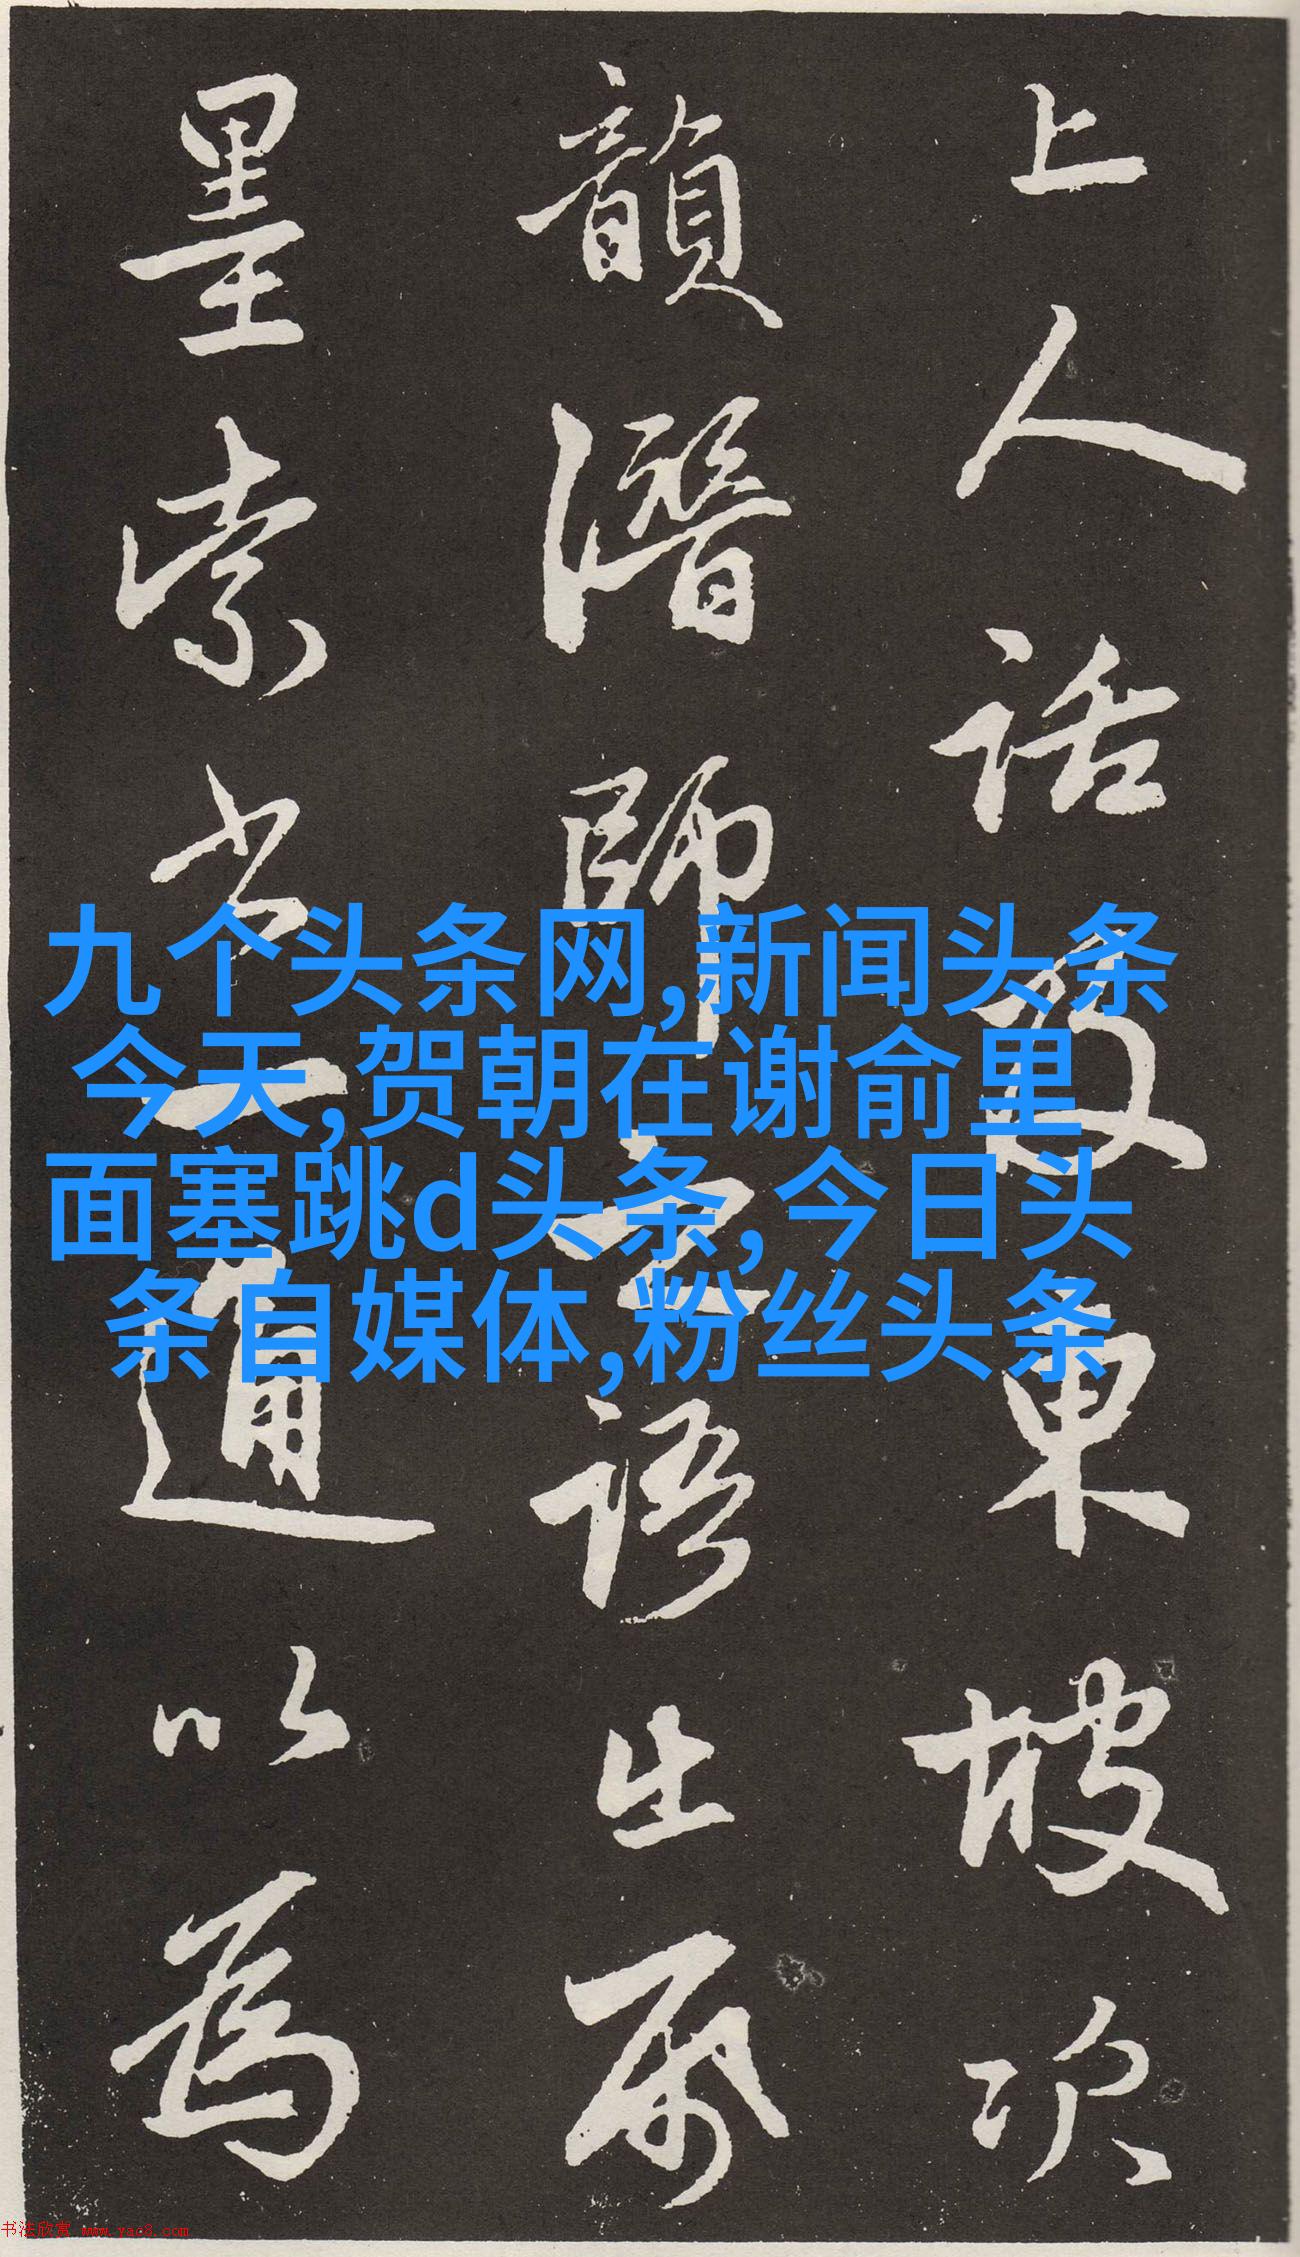 上人話及東坡次
韻潛師之語出帋
墨索書一通以為
九个头条网,新闻头条
今天,贺朝在谢俞里
面塞跳d头条,今日头
条自媒体,粉丝头条
书法欣赏 www.yac8.com